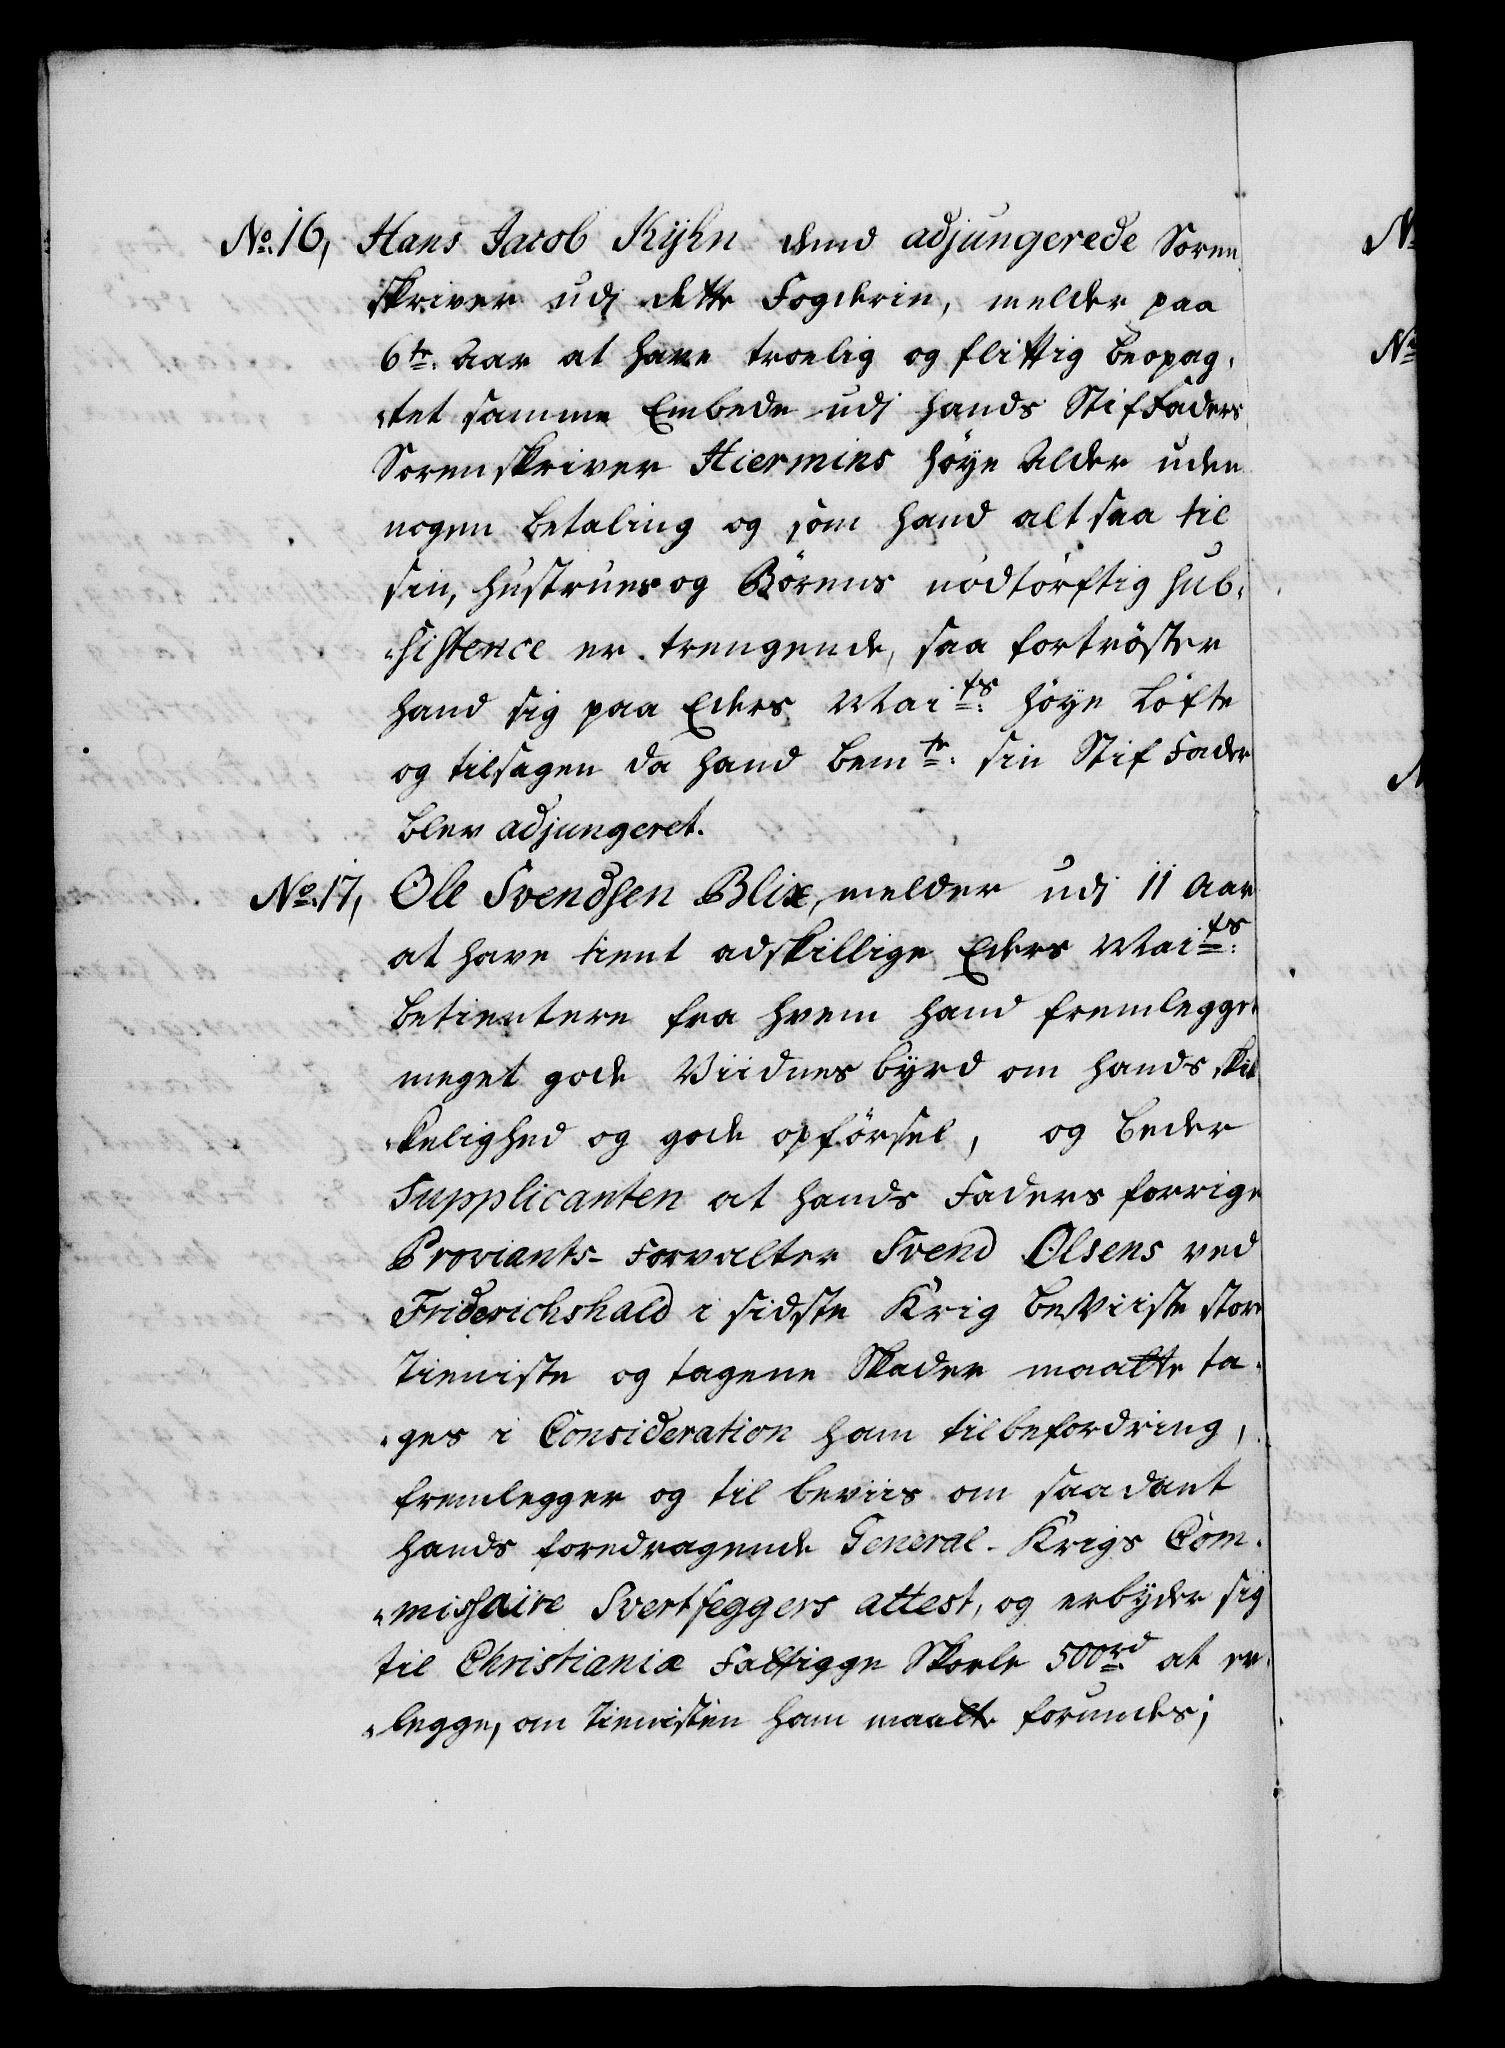 No. 16, Hans Jacob Kÿhn dend adjungerede Soren
skriver udj dette Fogderie, melder paa
6te. Aar at have troelig og flittig beopag„
„tet samme Embede udj hands StifFaders
Sorenskriver Hiermins höye Alder uden
nogen betaling og som hand altsaa til
sin, hustrues og Börens nödtörftig sub„
„sistence er trengende, saa fortröster
hand sig paa Eders Maits: höye Löfte
og tilsagen da hand bemte: sin Stif Fader
blev adjungeret.
No. 17, Ole Svendsen Blix, melder udj 11 Aar
at have tient adskillige Eders Maits:
betientere fra hvem hand fremlegger
meget gode Viidnesbyrd om hands skik
„kelighed og gode opförsel, og beder
Supplicanten at hands Faders forrige
Proviants-Forvalter Svend Olsens ved
Friderichshald i sidste Krig beviiste store
Tieniste og tagene Skader maatte ta„
„ges i Consideration ham til befordring,
fremlegger og til beviis om saadant
hands foredragende General-Krigs Com„
„missaire Svertfeggers attest, og erbyder sig
til Christianiæ Fattigge Skoele 500rd at er„
„legge, om Tienisten ham maatte forundes;
No
No
N